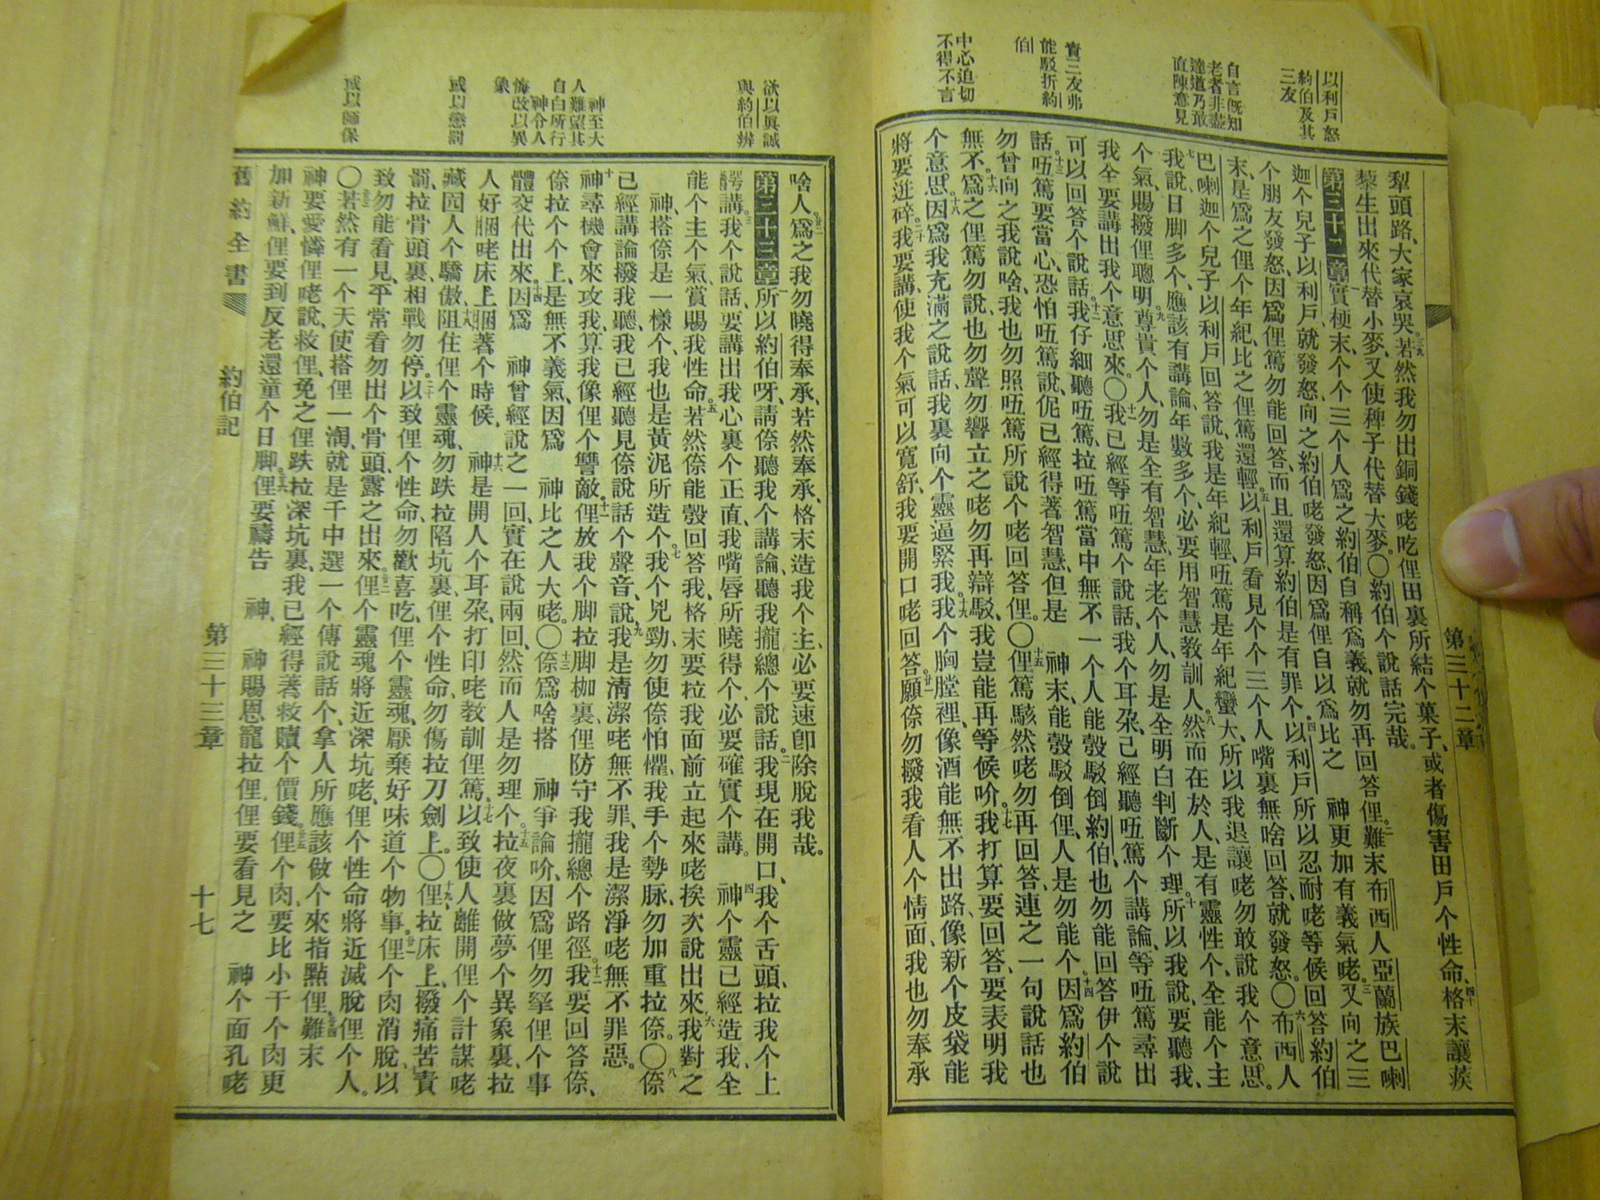 以利戶怒
約伯及其
三友
自言旣知
老者非盡
達道乃敢
直陳意見
責三友弗
能駁折約
伯
中心迫切
不得不言
第三十二章
犁頭路、大家哀哭、若然我勿出銅錢咾吃俚田裏所結个菓子、或者傷害田戶个性命、格末讓蒺
藜生出來代替小麥、又使稗子代替大麥。〇約伯个說話完哉。
第三十二章實梗末、个个三个人爲之約伯自稱爲義就勿再回答俚。難末布西人亞蘭族巴喇
迦个兒子以利戶就發怒、向之約伯咾發怒、因爲俚自以爲比之 神更加有義氣咾。又向之三
个朋友發怒、因爲俚篤勿能回答、而且還算約伯是有罪个。以利戶所以忍耐咾等候回答約伯
末、是爲之俚个年紀、比之俚篤還輕。以利戶看見个个三个人嘴裏無啥回答、就發怒。〇布西人
巴喇迦个兒子以利戶回答說、我是年紀輕、㕶篤是年紀蠻大、所以我退讓咾勿敢說我个意思。
我說、日脚多个、應該有講論、年數多个、必要用智慧教訓人。然而在於人、是有靈性个、全能个主
个氣、賜撥俚聰明。尊貴个人、勿是全有智慧、年老个人、勿是全明白判斷个理。所以我說、要聽我、
我全要講出我个意思來。〇我已經等㕶篤个說話、我个耳朶、己經聽㕶篤个講論、等㕶篤尋出
可以回答个說話。我仔細聽㕶篤、拉㕶篤當中無不一个人能彀駁倒約伯、也勿能回答伊个說
話。㕶篤要當心、恐怕㕶篤說、伲已經得著智慧、但是 神末、能彀駁倒俚、人是勿能个。因爲約伯
勿曾向之我說啥、我也勿照㕶篤所說个咾回答俚。〇俚篤駭然咾勿再回答、連之一句說話也
無不。爲之俚篤勿說、也勿聲勿響立之咾勿再辯駁、我豈能再等候吤。我打算要回答、要表明我
个意思。因爲我充滿之說話、我裏向个靈逼緊我。我个胸膛裡、像酒能無不出路、像新个皮袋能
將要迸碎。我要講、使我个氣可以寬舒、我要開口咾回答。願倷勿撥我看人个情面、我也勿奉承
欲以眞誠
與約伯辨
神至大
人難望其
自白所行
神令人
悔改以異
象
或以懲罰
或以師保
啥人。爲之我勿曉得奉承、若然奉承、格末造我个主、必要速卽除脫我哉。
第三十三章所以約伯呀、請倷聽我个講論、聽我攏總个說話。我現在開口、我个舌頭、拉我个上
腭講。我个說話、要講出我心裏个正直、我嘴唇所曉得个、必要確實个講。 神个靈已經造我、全
能个主个氣、賞賜我性命。若然倷能彀回答我、格末要拉我面前立起來咾挨次說出來。我對之
神、搭倷是一樣个、我也是黃泥所造个。我个兇勁、勿使倷怕懼、我手个勢脉、勿加重拉倷。〇倷
已經講論撥我聽、我已經聽見倷說話个聲音、說、我是清潔咾無不罪、我是潔淨咾無不罪惡。
神尋機會來攻我、算我像俚个讐敵。俚放我个脚拉脚枷裏、俚防守我攏總个路徑。我要回答倷、
倷拉个个上、是無不義氣、因爲 神比之人大咾。〇倷爲啥搭 神爭論吤、因爲俚勿拏俚个事
體交代出來。因爲 神曾經說之一回、實在說兩回、然而人是勿理个。拉夜裏做夢个異象裏、拉
人好睏咾床上睏著个時候、 神是開人个耳朶、打印咾教訓俚篤、以致使人離開俚个計謀咾
藏囥人个驕傲、阻住俚个靈魂、勿跌拉陷坑裏、俚个性命、勿傷拉刀劍上。〇俚拉床上、撥痛苦責
罰、拉骨頭裏、相戰勿停。以致俚个性命、勿歡喜吃、俚个靈魂、厭棄好味道个物事。俚个肉消脫、以
致勿能看見、平常看勿出个骨頭、露之出來。俚个靈魂將近深坑咾、俚个性命將近滅脫俚个人。
〇若然有一个天使搭俚一淘、就是千中選一个傳說話个、拿人所應該做个來指點俚、難末
神要愛憐俚咾說、救俚、免之俚跌拉深坑裏、我已經得著救贖个價錢。俚个肉、要比小干个肉更
加新鮮、俚要到反老還童个日脚。俚要禱告 神、 神賜恩寵拉俚、俚要看見之 神个面孔咾
舊約全書 約伯記 第三十三章 十七